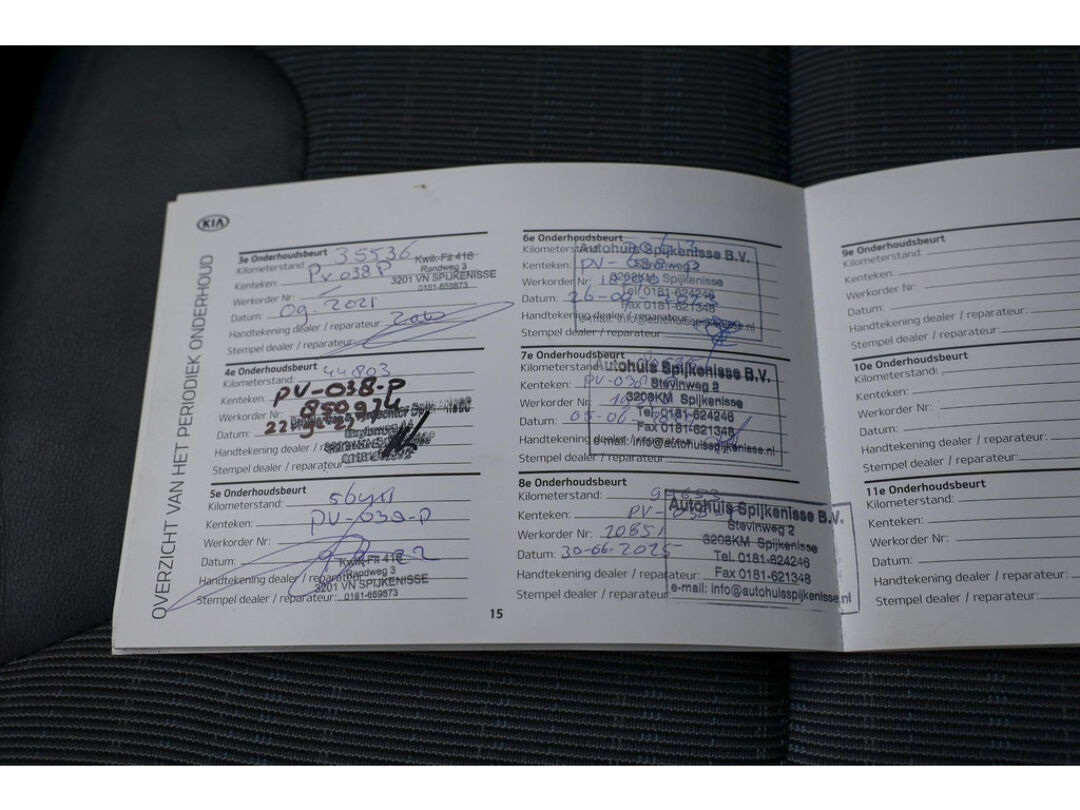 KIA
OVERZICHT VAN HET PERIODIEK ONDERHOUD
3e Onderhoudsbeurt
Kilometerstand: 35536
Kenteken: PV 038 P
Werkorder Nr:
Datum: 09-2021
Handtekening dealer / reparateur:
Stempel dealer / reparateur:
Kwik-Fit 416
Randweg 3
3201 VN SPIJKENISSE
0181-659873
4e Onderhoudsbeurt
Kilometerstand: 44803
Kenteken: PV-038-P
Werkorder Nr: 850974
Datum: 22
Handtekening dealer /
Stempel dealer / reparateur
5e Onderhoudsbeurt
Kilometerstand:
Kenteken: PV-038-P
Werkorder Nr:
Datum: 22
Handtekening dealer / reparateur:
Stempel dealer / reparateur:
Kwik-Fit 416
Randweg 3
3201 VN SPIJKENISSE
0181-659873
15
6e Onderhoudsbeurt
Kilometerstand:
Kenteken: PV-
Werkorder Nr:
Datum: 26-
Handtekening dealer / reparateur:
Stempel dealer / reparateur:
Autohuis Spijkenisse B.V.
Stevinweg 2
3208KM Spijkenisse
Tel. 0181-624246
Fax 0181-621348
e-mail: info@autohuisspijkenisse.nl
7e Onderhoudsbeurt
Kilometerstand:
Kenteken: PV-038
Werkorder Nr:
Datum: 05-06
Handtekening dealer / reparateur:
Stempel dealer / reparateur:
Autohuis Spijkenisse B.V.
Stevinweg 2
3208KM Spijkenisse
Tel. 0181-624246
Fax 0181-621348
e-mail: info@autohuisspijkenisse.nl
8e Onderhoudsbeurt
Kilometerstand:
Kenteken: PV-
Werkorder Nr: 20851
Datum: 30-06-2025
Handtekening dealer / reparateur:
Stempel dealer / reparateur:
Autohuis Spijkenisse B.V.
Stevinweg 2
3208KM Spijkenisse
Tel. 0181-624246
Fax 0181-621348
e-mail: info@autohuisspijkenisse.nl
9e Onderhoudsbeurt
Kilometerstand:
Kenteken:
Werkorder Nr:
Datum:
Handtekening dealer / reparateur:
Stempel dealer / reparateur:
10e Onderhoudsbeurt
Kilometerstand:
Kenteken:
Werkorder Nr:
Datum:
Handtekening dealer / reparateur:
Stempel dealer / reparateur:
11e Onderhoudsbeurt
Kilometerstand:
Kenteken:
Werkorder Nr:
Datum:
Handtekening dealer / reparateur:
Stempel dealer / reparateur: